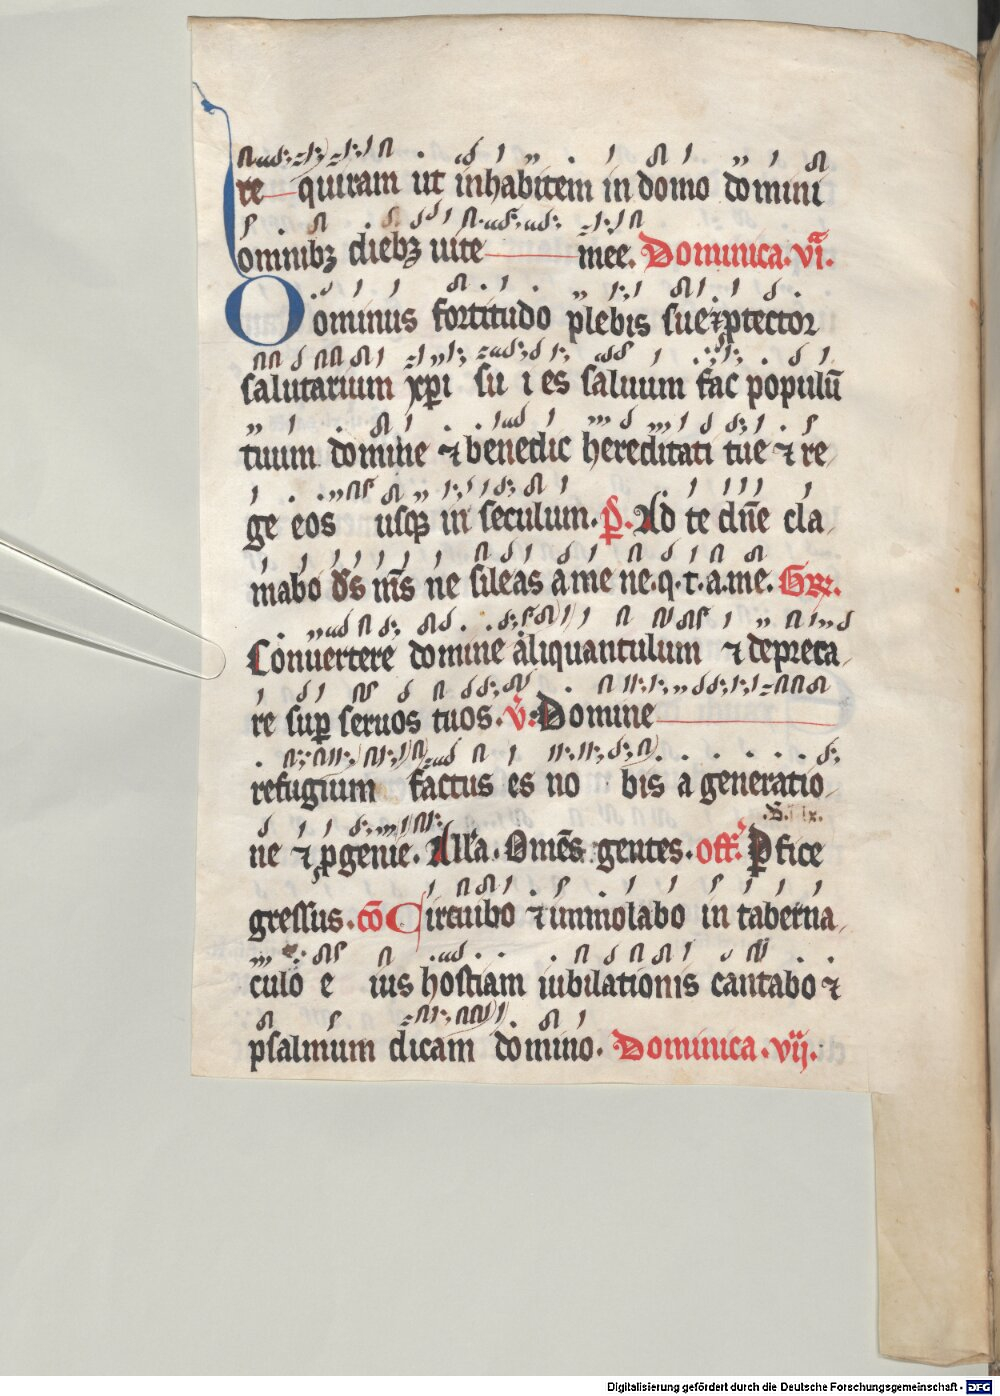 re quiram ut inhabitem in domo domini
omnibꝫ diebꝫ uite mee. Dominica. vi.
Dominus fortitudo plebis sue ⁊ ꝓtector
salutarium xp̄i su i es saluum fac populū
tuum domine ⁊ benedic hereditati tue ⁊ re
ge eos usqꝫ in seculum. p̄. Ad te dn̄e cla
mabo ds̄ ms̄ ne sileas a me ne. q. t. a. me. Gr.
Conuertere domine aliquantulum ⁊ depreca
re suꝑ seruos tuos. v̄. Domine
refugium factus es no bis a generatio
.S. lx.
ne ⁊ ꝓgenie. All'a. Omēs gentes. off. ꝑfice
gressus. cō Circuibo ⁊ immolabo in taberna
culo e ius hostiam iubilationis cantabo ⁊
psalmum dicam domino. Dominica. vij.
Digitalisierung gefördert durch die Deutsche Forschungsgemeinschaft - DFG